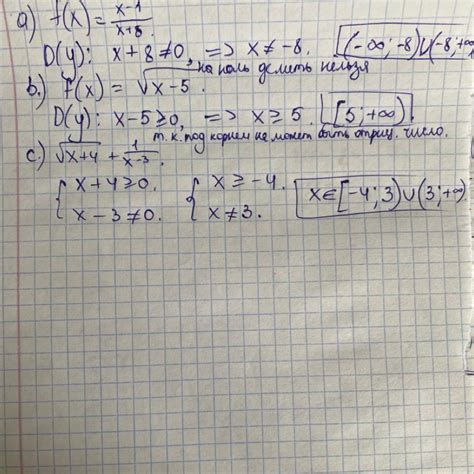 a) f(x) = x-1/x+8
D(y): x+8≠0, => x≠-8. (-∞;-8)∪(-8;+∞
на ноль делить нельзя
b.) f(x) = √x-5.
D(y): x-5≥0, => x≥5. [5;+∞).
т.к. под корнем не может быть отриц. число.
c.) √x+4 + 1/x-3.
{x+4≥0. {x≥-4. x∈[-4;3)∪(3;+∞)
{x-3≠0. {x≠3.